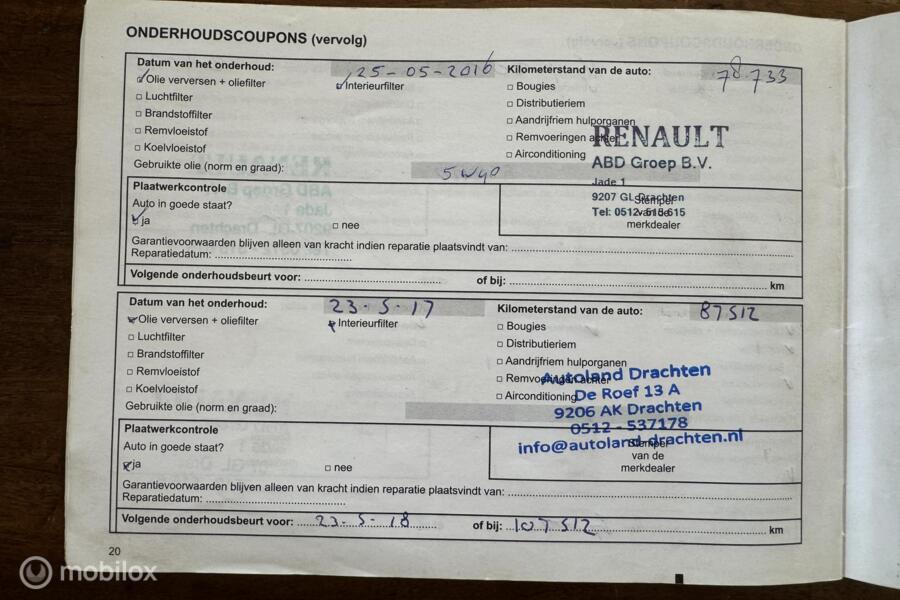 ONDERHOUDSCOUPONS (vervolg)
Datum van het onderhoud: 25-05-2016 Kilometerstand van de auto: 78.733
Olie verversen + oliefilter Interieurfilter Bougies
Luchtfilter Distributieriem
Brandstoffilter Aandrijfriem hulporganen
Remvloeistof Remvoeringen achter
Koelvloeistof Airconditioning
RENAULT
ABD Groep B.V.
Jade 1
9207 GL Drachten
Tel: 0512 - 515 615
Gebruikte olie (norm en graad): 5W40
Plaatwerkcontrole
Auto in goede staat?
ja nee
Stempel
van de
merkdealer
Garantievoorwaarden blijven alleen van kracht indien reparatie plaatsvindt van:
Reparatiedatum:
Volgende onderhoudsbeurt voor: of bij: km
Datum van het onderhoud: 23-5-17 Kilometerstand van de auto: 87512
Olie verversen + oliefilter Interieurfilter Bougies
Luchtfilter Distributieriem
Brandstoffilter Aandrijfriem hulporganen
Remvloeistof Remvoeringen achter
Koelvloeistof Airconditioning
Autoland Drachten
De Roef 13 A
9206 AK Drachten
0512 - 537178
info@autoland-drachten.nl
Gebruikte olie (norm en graad):
Plaatwerkcontrole
Auto in goede staat?
ja nee
Stempel
van de
merkdealer
Garantievoorwaarden blijven alleen van kracht indien reparatie plaatsvindt van:
Reparatiedatum:
Volgende onderhoudsbeurt voor: 23-5-18 of bij: 107512 km
20
mobilox